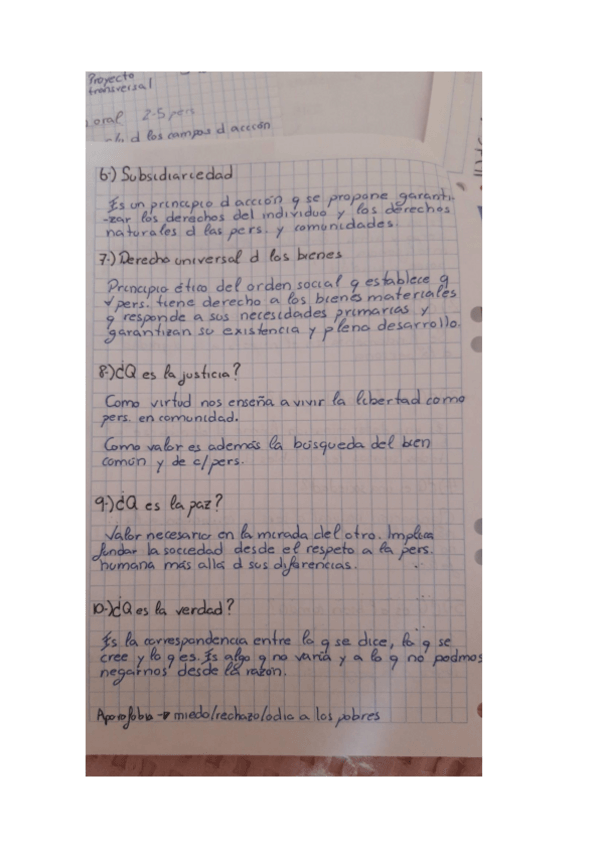 Proyecto
transversal
oral 2-5 pers
d los campos d acción
6.) Subsidiariedad
Es un principio d acción q se propone garanti-
-zar los derechos del individuo y los derechos
naturales d las pers. y comunidades.
7.) Derecho universal d los bienes
Principio ético del orden social q establece q
pers. tiene derecho a los bienes materiales
q responde a sus necesidades primarias y
garantizan su existencia y pleno desarrollo.
8.) ¿Q es la justicia?
Como virtud nos enseña a vivir la libertad como
pers. en comunidad.
Como valor es además la búsqueda del bien
común y de c/pers.
9.) ¿Q es la paz?
Valor necesario en la mirada del otro. Implica
fundar la sociedad desde el respeto a la pers.
humana más allá d sus diferencias.
10.) ¿Q es la verdad?
Es la correspondencia entre lo q se dice, lo q se
cree y lo q es. Es algo q no varía y a lo q no podmos
negarnos desde la razón.
Aporofobia → miedo/rechazo/odia a los pobres